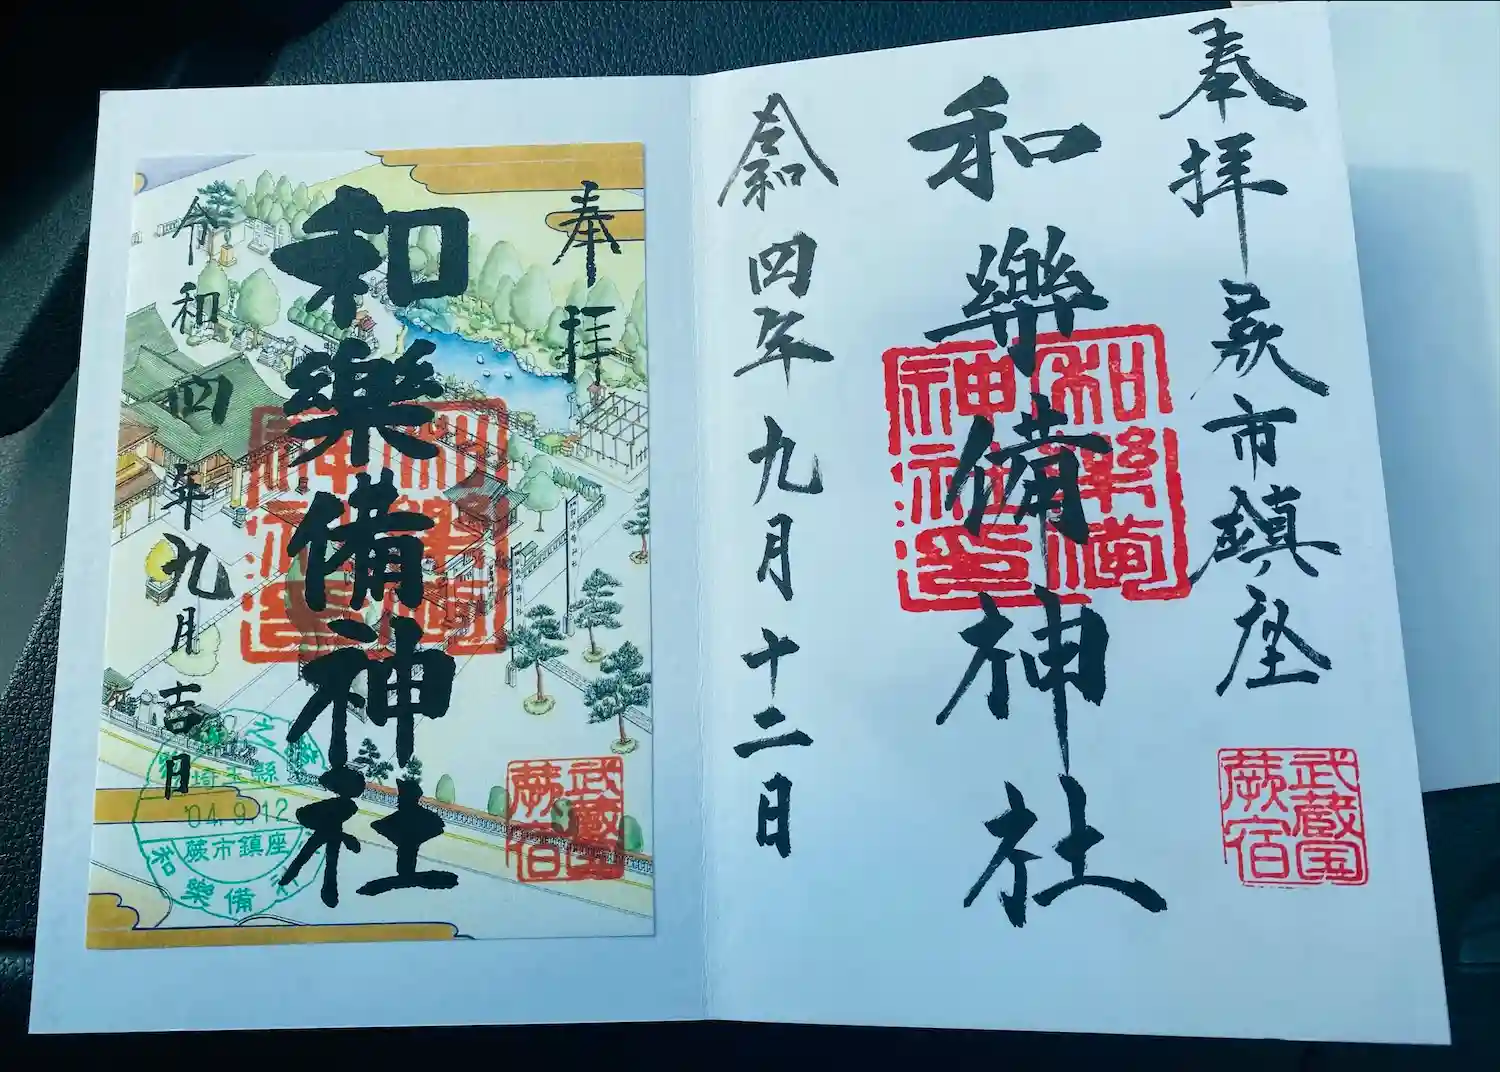 奉拝 蕨市鎮座
和樂備神社
和樂備神社之印
武蔵国蕨宿
令和四年九月十二日
奉拝
和樂備神社
令和四年九月吉日
武蔵国蕨宿
埼玉縣
'04.9.12
蕨市鎮座
和樂備